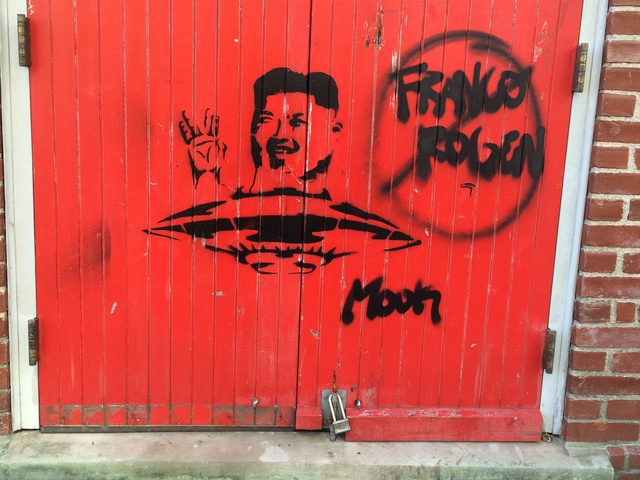 FRANCO
ROGEN
MOOK